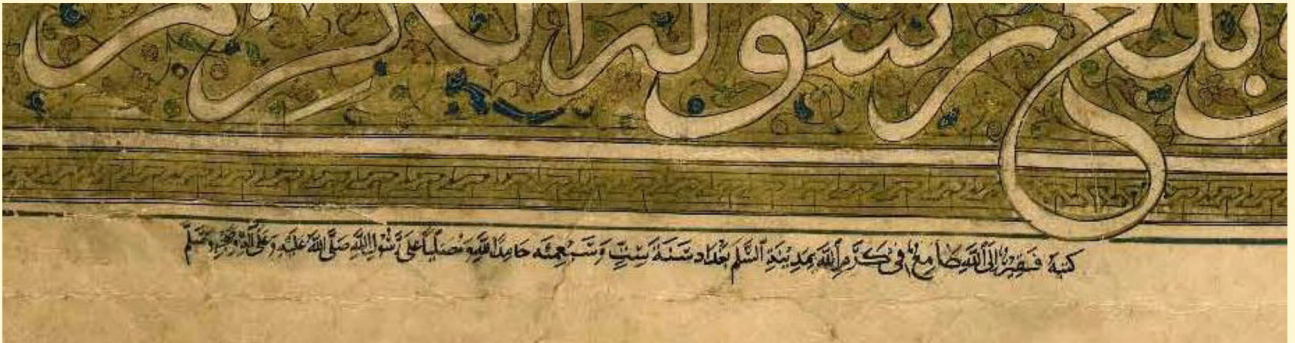 وبلغ رسوله الكريم
كتبه فقير إلى الله طامع في كرم الله بمدينة السلم بغداد سنة ست وسبعمئه حامدا لله ومصليا على رسول الله صلى الله عليه وعلى آله وصحبه وسلم